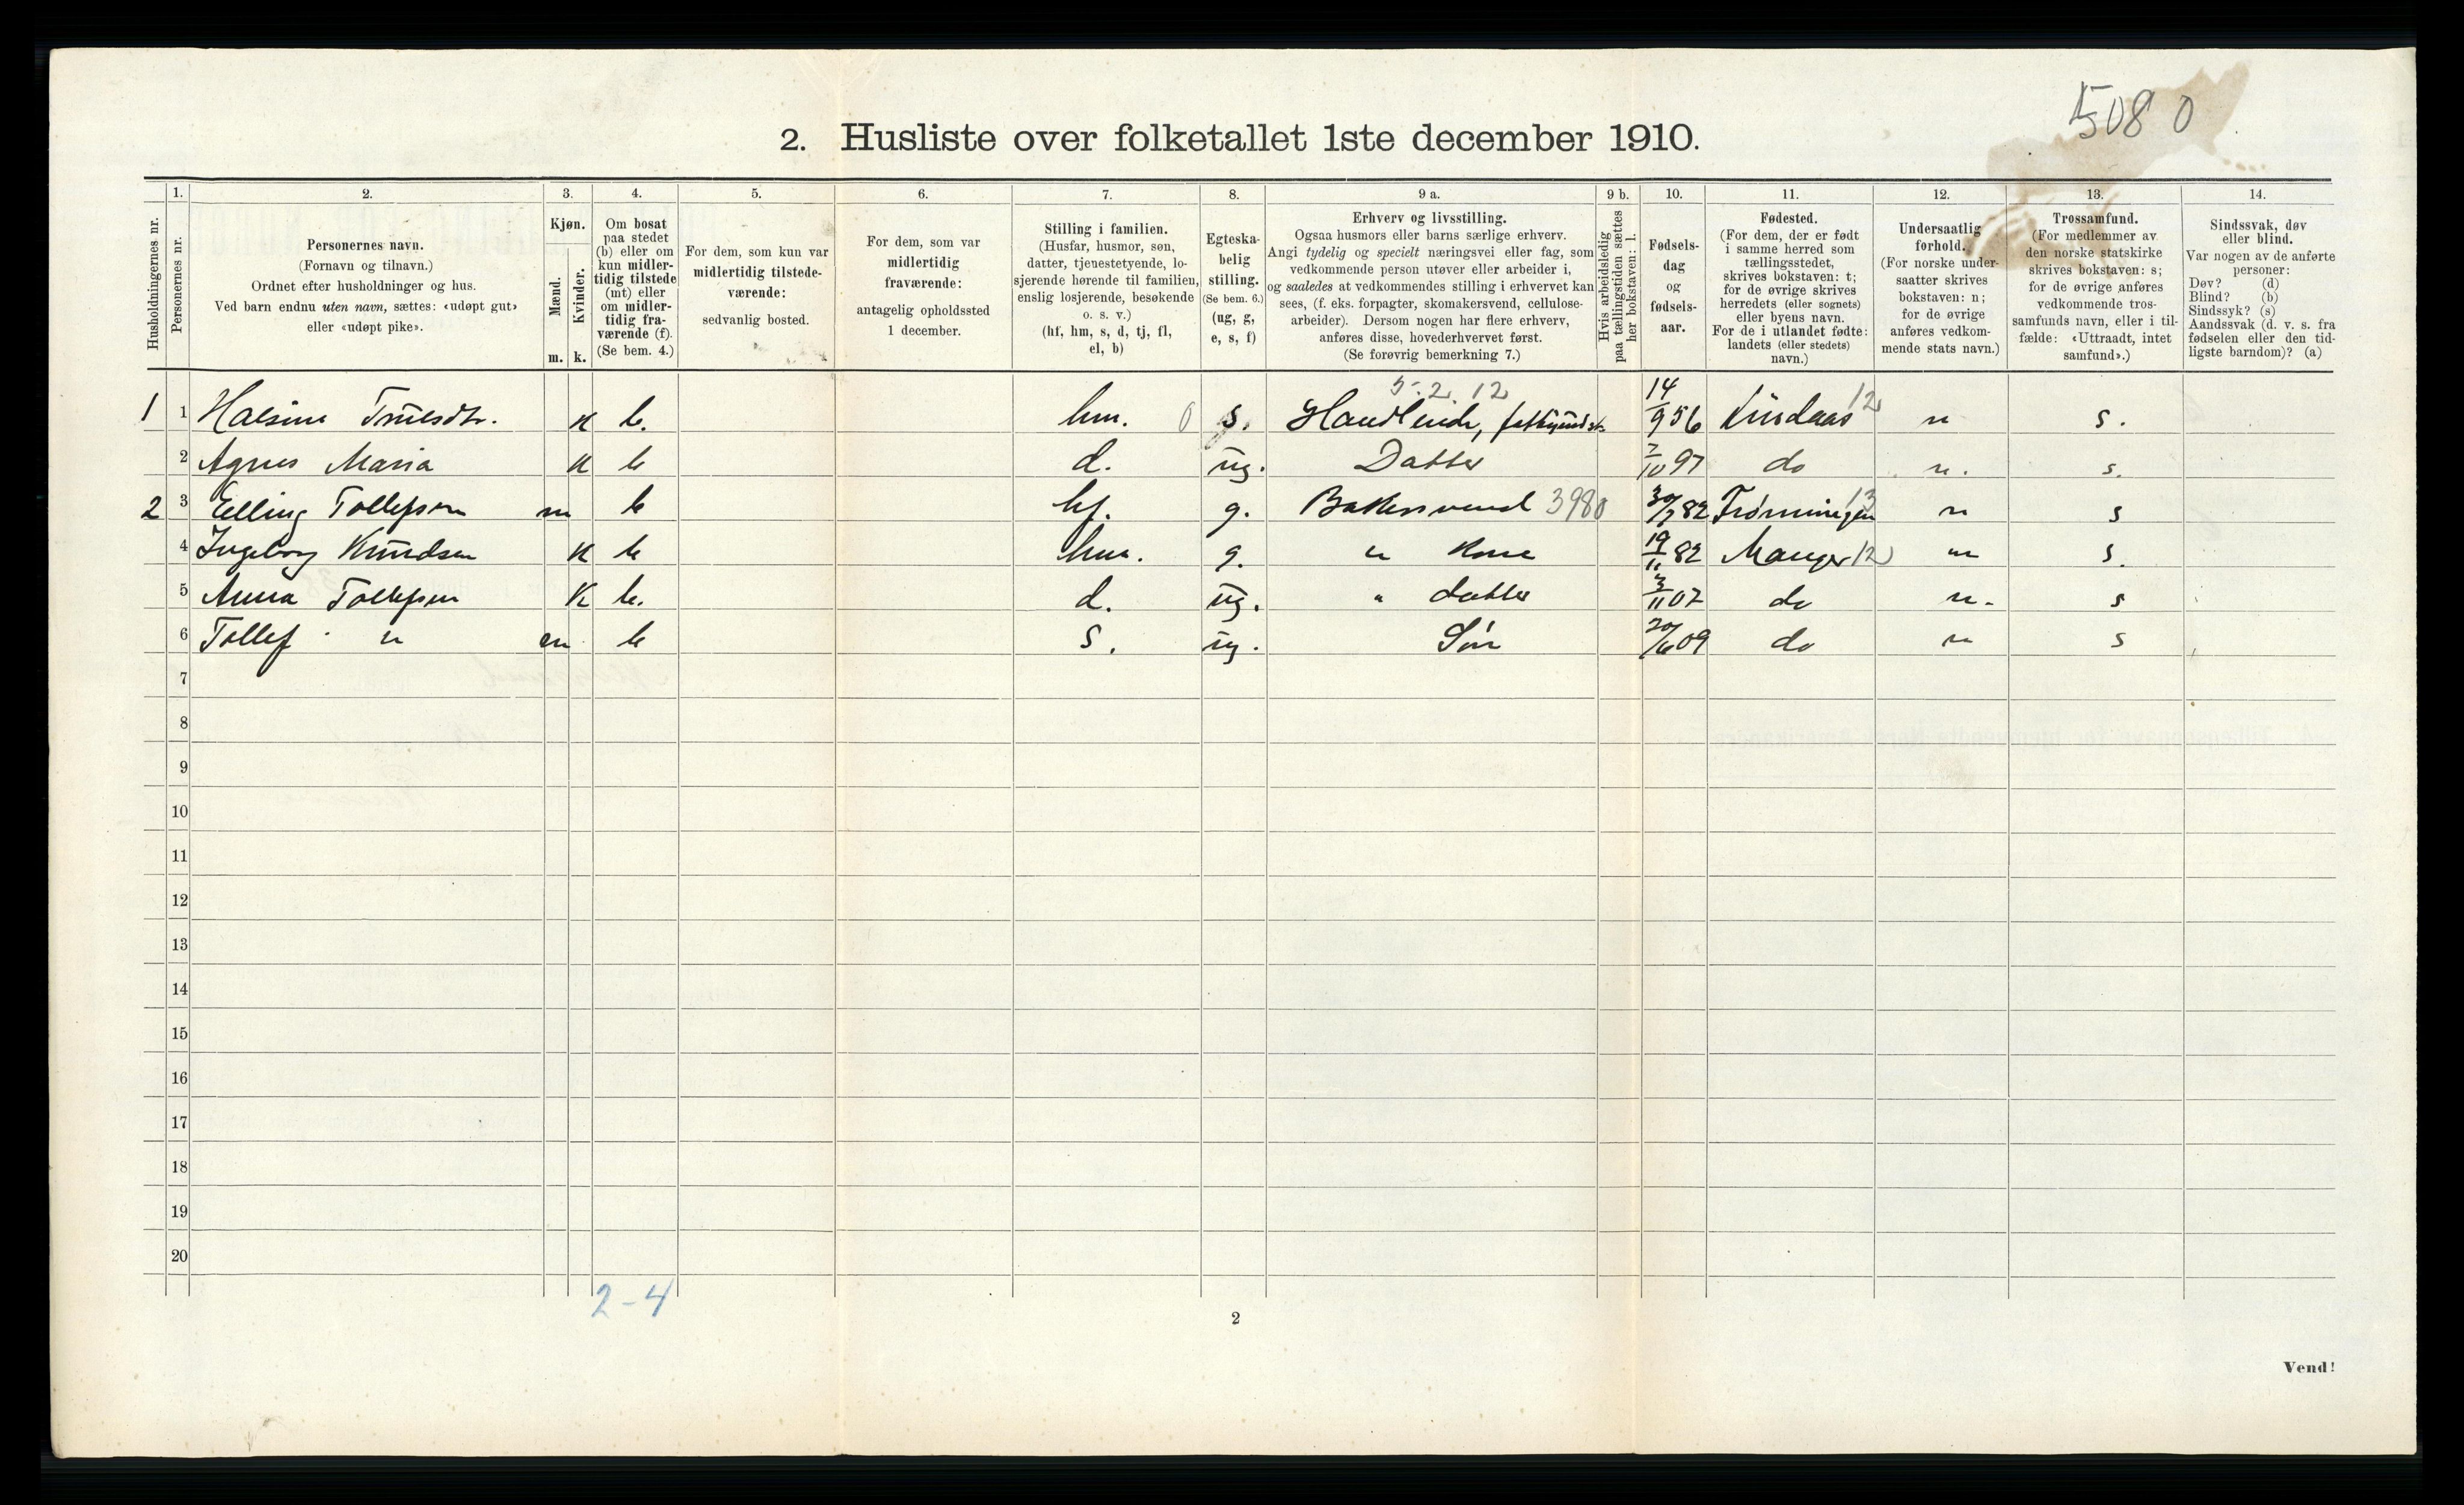 5080
2. Husliste over folketallet 1ste december 1910.
Husholdningernes nr.
1. Personernes nr.
2. Personernes navn. (Fornavn og tilnavn.) Ordnet efter husholdninger og hus. Ved barn endnu uten navn, sættes: «udøpt gut» eller «udøpt pike».
3. Kjøn. Mænd. m. Kvinder. k.
4. Om bosat paa stedet (b) eller om kun midlertidig tilstede (mt) eller om midlertidig fraværende (f). (Se bem. 4.)
5. For dem, som kun var midlertidig tilstedeværende: sedvanlig bosted.
6. For dem, som var midlertidig fraværende: antagelig opholdssted 1 december.
7. Stilling i familien. (Husfar, husmor, søn, datter, tjenestetyende, losjerende hørende til familien, enslig losjerende, besøkende o. s. v.) (hf, hm, s, d, tj, fl, el, b)
8. Egteskabelig stilling. (Se bem. 6.) (ug, g, e, s, f)
9 a. Erhverv og livsstilling. Ogsaa husmors eller barns særlige erhverv. Angi tydelig og specielt næringsvei eller fag, som vedkommende person utøver eller arbeider i, og saaledes at vedkommendes stilling i erhvervet kan sees, (f. eks. forpagter, skomakersvend, cellulosearbeider). Dersom nogen har flere erhverv, anføres disse, hovederhvervet først. (Se forøvrig bemerkning 7.)
9 b. Hvis arbeidsledig paa tællingstiden sættes her bokstaven: l.
10. Fødselsdag og fødselsaar.
11. Fødested. (For dem, der er født i samme herred som tællingsstedet, skrives bokstaven: t; for de øvrige skrives herredets (eller sognets) eller byens navn. For de i utlandet fødte: landets (eller stedets) navn.)
12. Undersaatlig forhold. (For norske undersaatter skrives bokstaven: n; for de øvrige anføres vedkommende stats navn.)
13. Trossamfund. (For medlemmer av den norske statskirke skrives bokstaven: s; for de øvrige anføres vedkommende trossamfunds navn, eller i tilfælde: «Uttraadt, intet samfund».)
14. Sindssvak, døv eller blind. Var nogen av de anførte personer: Døv? (d) Blind? (b) Sindssyk? (s) Aandssvak (d. v. s. fra fødselen eller den tidligste barndom)? (a)
5.2.12
1 1 Truesdtr. k b. hm. 0 s. 14/9 56 Lindaas 12 n s.
2 Agnes Maria k b d. ug. Datter 7/10 97 do n. s.
2 3 Elling Tollefsen m b hf. g. Bakersvend 3980 30/7 82 13 n s
4 Ingeborg Knudsen k b hm. g. " Kone 19/11 82 Manger 12 n s.
5 Anna Tollefsen k b. d. ug. " datter 3/11 07 do n. s
6 Tollef " m b s. ug. Søn 20/6 09 do n s
7
8
9
10
11
12
13
14
15
16
17
18
19
20
2-4
2
Vend!